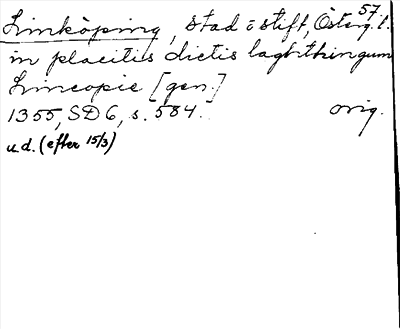 57.
Linköping, stad o stift, Österg.l.
in placitis dictis laghthingum
Lincopie [gen.]
1355, SD 6, s. 584. orig.
u.d. (efter 15/3)